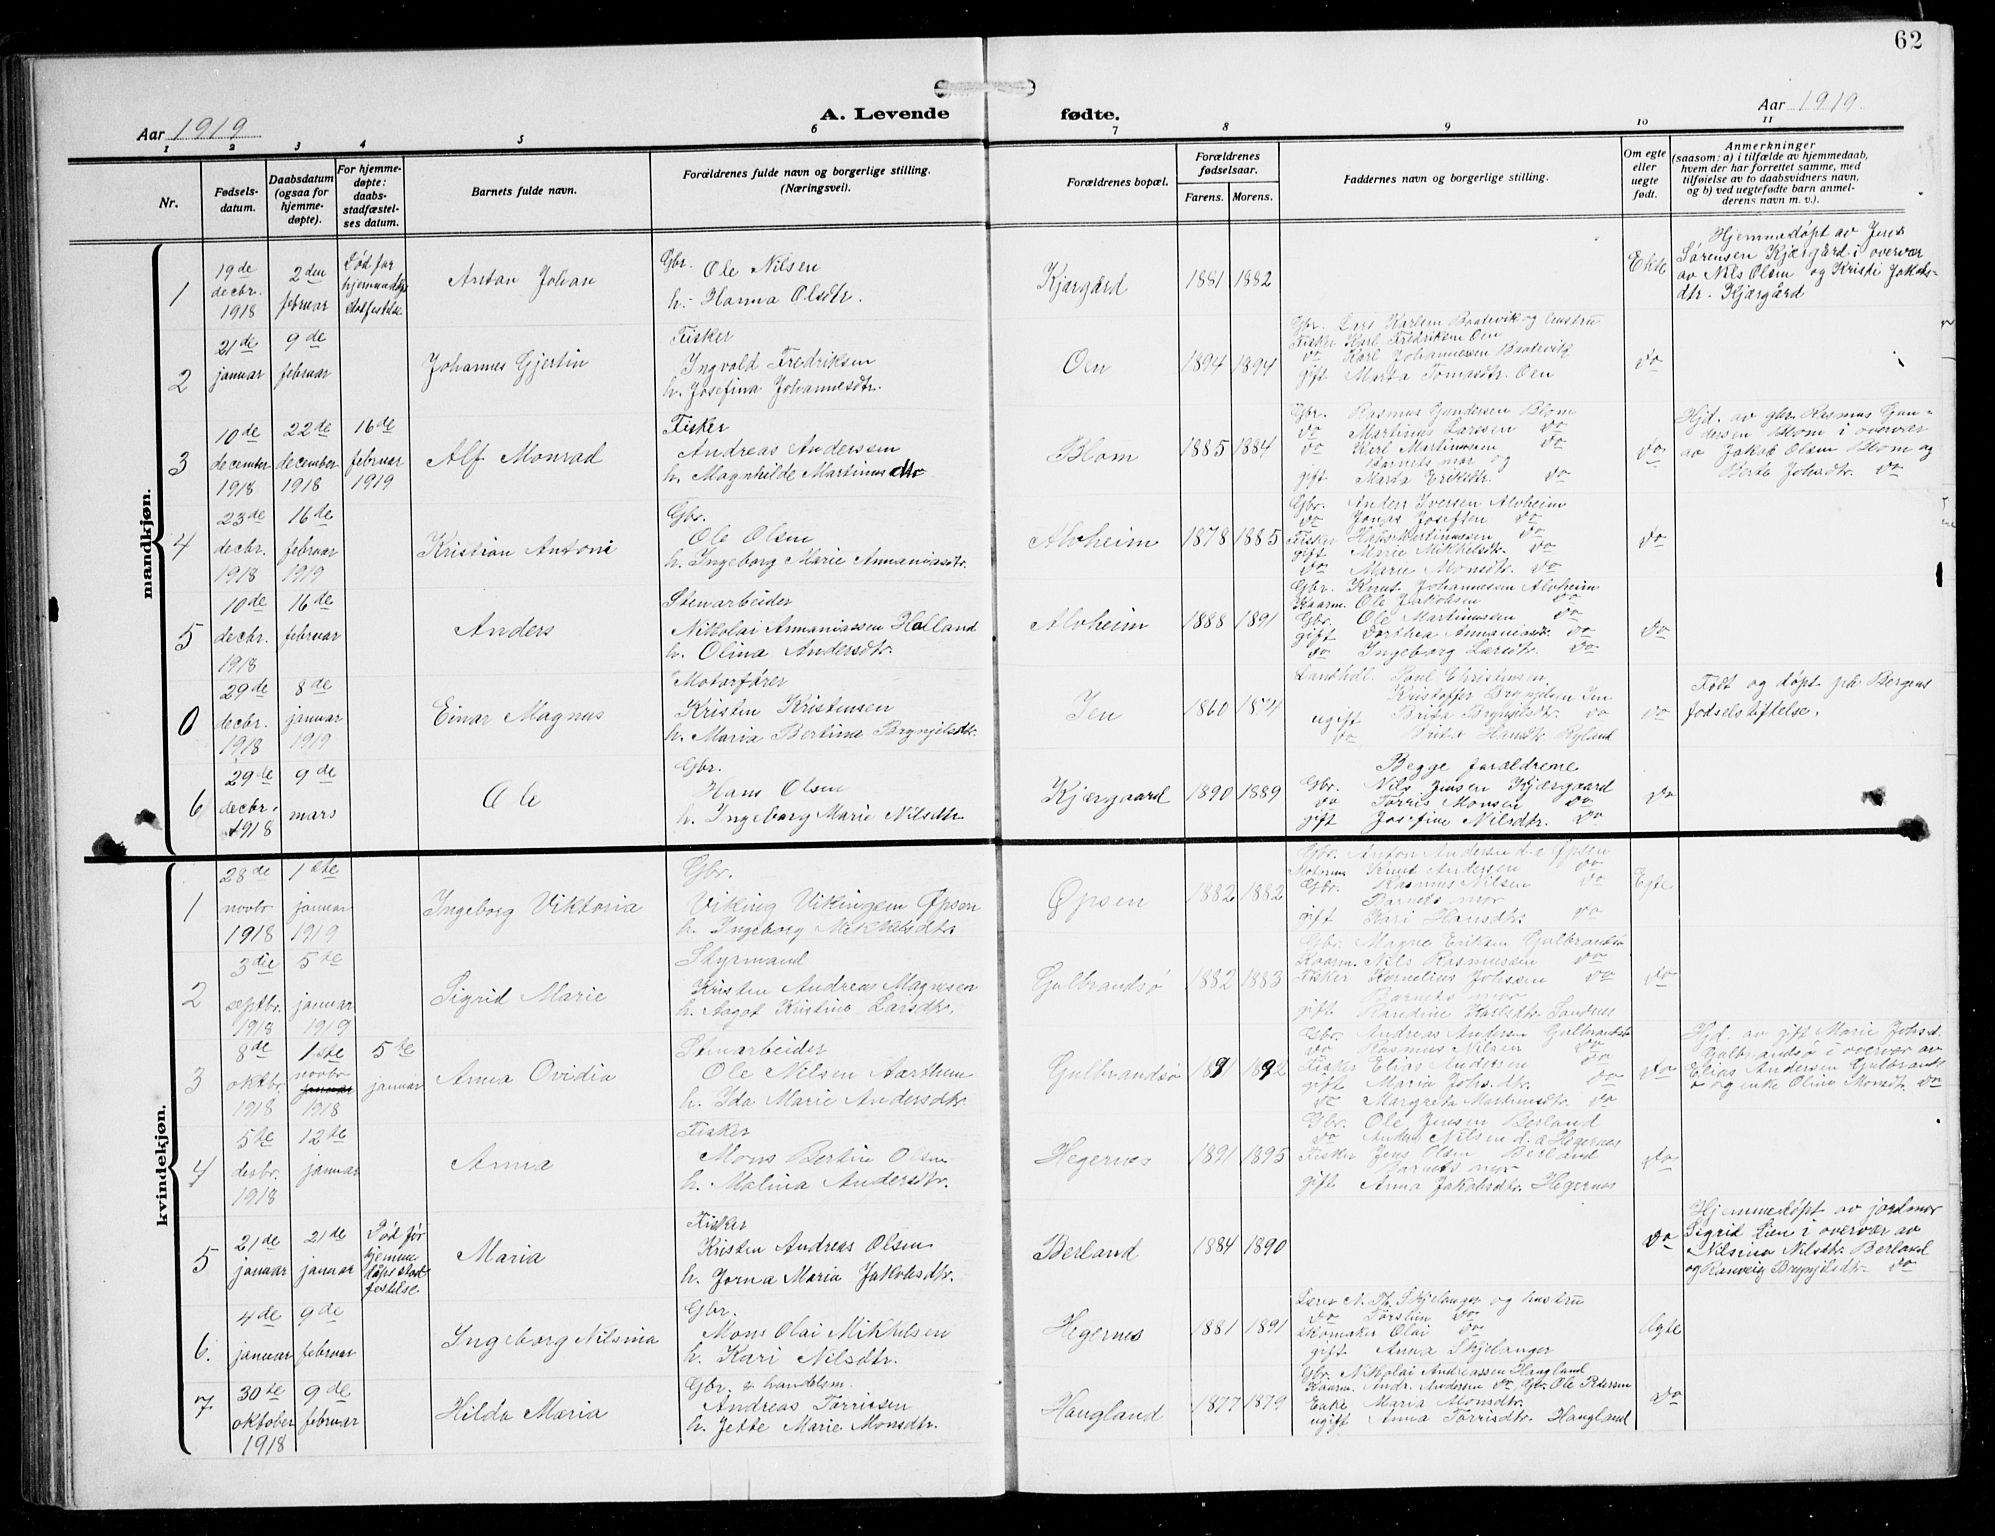 62
Aar 1919
A. Levende fødte.
Aar 1919.
1 2 3 4 5 6 7 8 9 10 11
Nr.
Fødsels-
datum.
Daabsdatum
(ogsaa for
hjemme-
døpte).
For hjemme-
døpte:
daabs-
stadfæstel-
ses datum.
Barnets fulde navn.
Forældrenes fulde navn og borgerlige stilling.
(Næringsvei).
Forældrenes bopæl.
Forældrenes
fødselsaar.
Farens. Morens.
Faddernes navn og borgerlige stilling.
Om egte
eller
uegte
født.
Anmerkninger
(saasom: a) i tilfælde av hjemmedaab,
hvem der har forrettet samme, med
tilføielse av to daabsvidners navn,
og b) ved uegtefødte barn anmel-
derens navn m. v.).
mandkjøn.
1
19de
decbr.
1918
2den
februar
Død før
hjemmedøps
stadfestelse
Anton Johan
Gbr.
Ole Nilsen
h. Hanna Olsdtr.
Kjærgård
1881 1882
Ekte
Hjemmedøpt av Jens
Sørensen Kjærgård i overvær
av Nils Olsen og Kristi Jakobs-
dtr. Kjærgård
2
21de
januar
9de
februar
Johannes Gjertin
Fisker
Ingvald Fredriksen
h. Josefina Johannesdtr.
Oen
1894 1894
Gbr. Lars Karlsen Baatevik og hustru
Fisker Karl Fredriksen Oen
do Karl Johannessen Baatevik
gift Marta Tomasdtr. Oen
do
3
10de
december
1918
22de
december
1918
16de
februar
1919
Alf Monrad
Fisker
Andreas Anderssen
h. Magnhilde Martinusdtr
Blom
1885 1884
Gbr. Rasmus Gundersen Blom
do Martinus Larssen do
do Karl Martinussen do
Barnets mor og
gift Marta Eriksdtr. do
do
Hjd. av gbr. Rasmus Gun-
dersen Blom i overvær
av Jakob Olsen Blom og
Berte Johsdtr. do
4
23de
decbr.
1918
16de
februar
1919
Kristian Antoni
Gbr.
Ole Olsen
h. Ingeborg Marie Annaniasdtr.
Alvheim
1878 1885
Gbr. Anders Iversen Alvheim
do Jonas Josefsen do
Fisker Hans Martinussen do
gift Marie Mikkelsdtr. do
do Marie Monsdtr. do
do
5
10de
decbr.
1918
16de
februar
Anders
Stenarbeider
Nikolai Annaniassen Holland
h. Olina Andersdtr.
Alvheim
1888 1891
Gbr. Knut Johannessen Alvheim
Kaarm. Ole Jakobsen do
Gbr. Ole Martinussen do
gift Dorthea Annaniasdtr. do
do Ingeborg Larsdtr. do
do
0
29de
decbr.
1918
8de
januar
1919
Einar Magnus
Motorfører
Kristen Kristensen
h. Maria Bertina Brynjelsdtr.
Jen
1860
Landhdl. Paul Christensen
Kristoffer Brynjelsen Jen
ugift Brita Brynjelsdtr. do
do Brita Hansdtr. Ryland
do
Født og døpt på Bergens
fødselstiftelse.
6
29de
decbr.
1918
9de
mars
Ole
Gbr.
Hans Olsen
h. Ingeborg Marie Nilsdtr.
Kjærgaard
1890 1889
Begge forældrene
Gbr. Nils Jensen Kjærgaard
do Tørris Monsen do
gift Josefine Nilsdtr. do
do
kvindekjøn.
1
28de
novbr
1918
1ste
januar
1919
Ingeborg Viktoria
Gbr.
Viking Vikingsen Øpsen
h. Ingeborg Mikkelsdtr.
Øpsen
1882 1882
Gbr. Anton Andersen d.e Øpsen
Knut Andersen do
Gbr. Rasmus Nilsen do
Barnets mor
gift Kari Hansdtr. do
Egte
2
3die
septbr.
1918
5te
januar
1919
Sigrid Marie
Styrmand
Kristen Andreas Magnesen
h. Aagot Kristine Larsdtr.
Gulbrandsø
1882 1883
Gbr. Magne Eriksen Gulbrandsø
Kaarm. Nils Rasmussen do
Fisker Kornelius Johssen do
Barnets mor
gift Handine Karlsdtr. Sandnes
do
3
8de
oktbr.
1918
1ste
novbr
januar
1918
5te
januar
Anna Ovidia
Stenarbeider
Ole Nilsen Aarthem
h. Ida Marie Andersdtr.
Gulbrandsø
1891 1892
Gbr. Andreas Andersen Gulbrandsø
do Rasmus Nilsen do
Fisker Elias Andersen do
gift Maria Johs.dtr. do
do Margreta Martinusdtr. do
do
Hjd. av gift Marie Johsd.
Gulbrandsø i overvær av
Elias Andersen Gulbrands
ø og enke Oline Monsdtr. do
4
5te
desbr.
1918
12te
januar
Anna
Fisker
Mons Bertin Olsen
h. Malina Andersdtr.
Hegernes
1891 1895
Gbr. Ole Jensen Berland
do Anders Nilsen d.e Hegernes
Fisker Jens Olsen Berland
Barnets mor
gift Anna Jakobsdtr. Hegernes
do
5
21de
januar
21de
januar
Død før
hjemme
døpt stad
festelse
Maria
Fisker
Kristen Andreas Olsen
h. Jorna Maria Jakobsdtr.
Berland
1884 1890
do
Hjemmedøpt av jordmor
Sigrid Lien i overvær av
Nilsina Nilsdtr. Berland
og Ranveig Brynjilsdtr. do
6.
4de
januar
9de
februar
Ingeborg Nilsina
Gbr.
Mons Olai Mikkelsen
h. Kari Nilsdtr.
Hegernes
1881 1891
Lærer N. Th. Skjelanger og hustru
do Torstein do
Skomaker Olai do
gift Anna Skjelanger
Ægte
7
30te
oktober
1918
9de
februar
Hilda Maria
Gbr. & handelsm.
Andreas Tørrissen
h. Jette Marie Monsdtr.
Haugland
1877 1879
Gbr. Nikolai Andreassen Haugland
Kaarm. Andr. Andersen do, Gbr. Ole Petersen
Enke Maria Monsdtr.
ugift Anna Tørrisdtr. Haugland
do